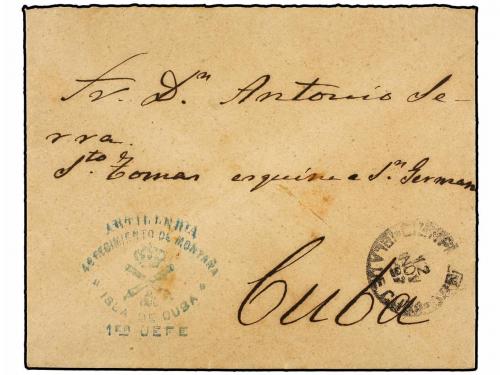 Sr. Dn Antonio Se-
rra.
Sto Tomas esquina a Sn German
Cuba
ARTILLERIA
4º REGIMIENTO DE MONTAÑA
ISLA DE CUBA
1ER JEFE
12
NOV
97